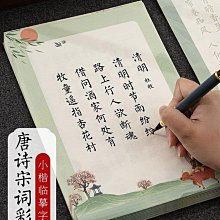 清明 杜牧
清明时节雨纷纷
路上行人欲断魂
借问酒家何处有
牧童遥指杏花村
小楷临摹字
唐诗宋词彩